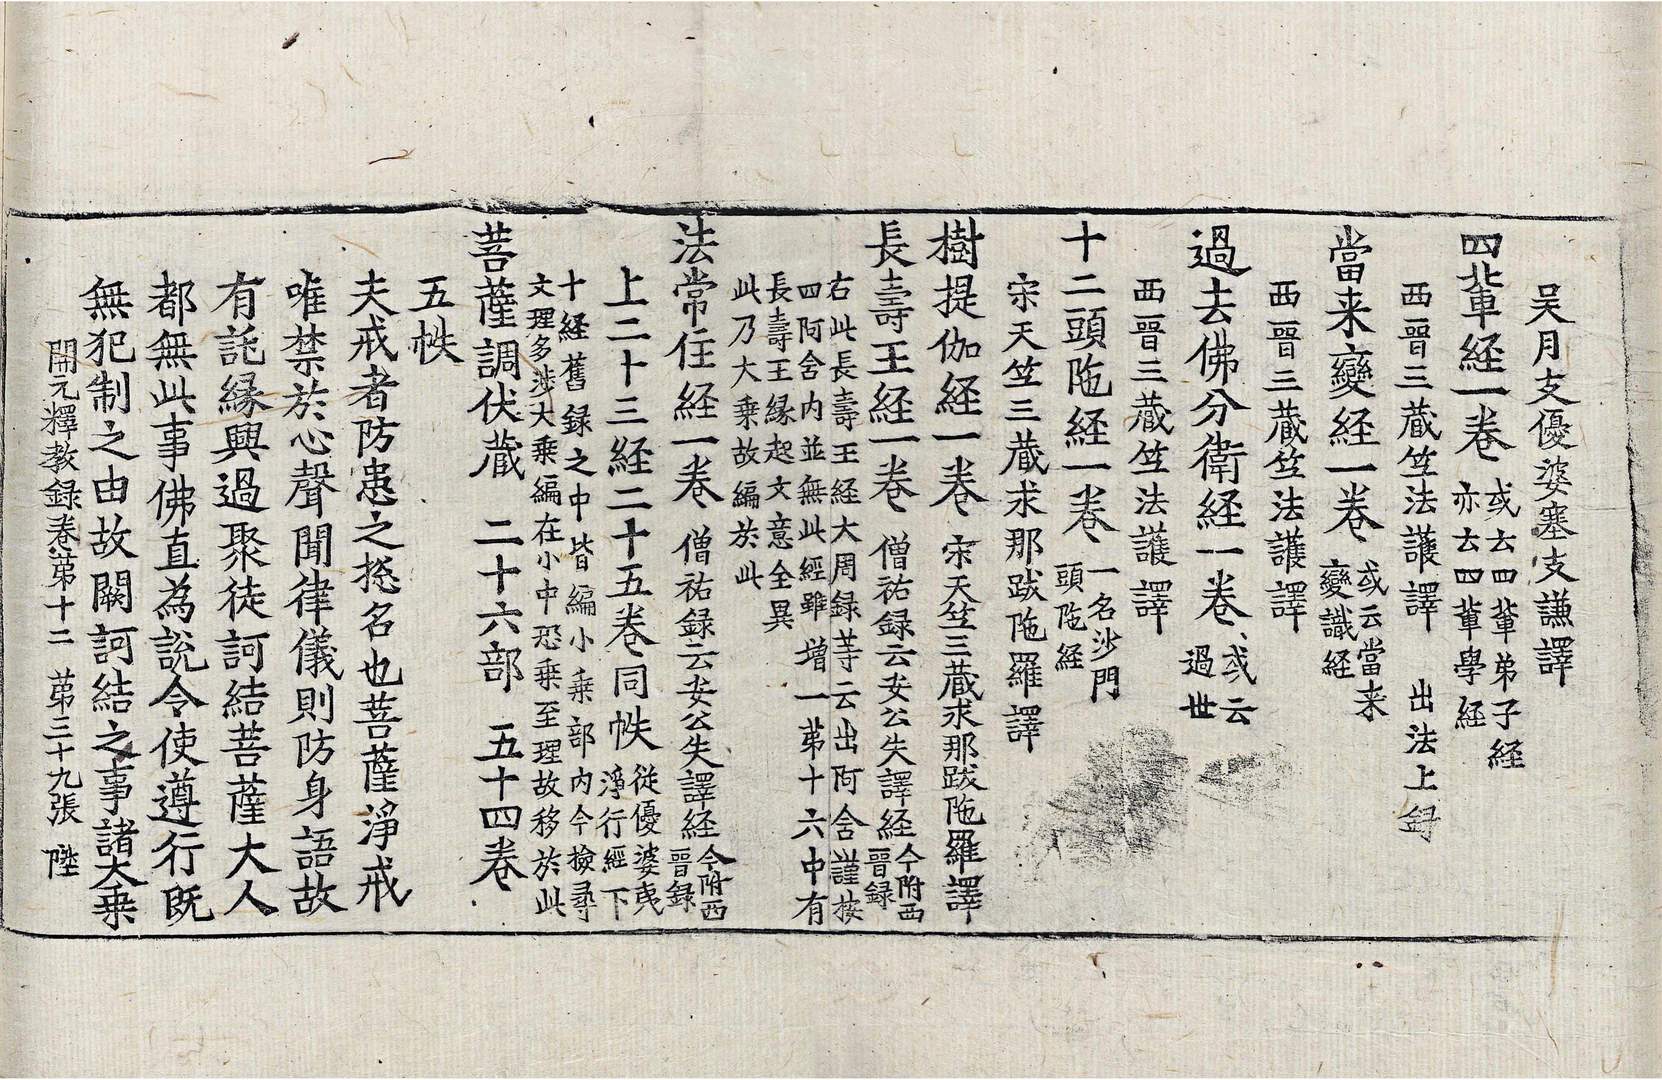 吴月支優婆塞支謙譯
四輩経一巻 或云四輩弟子経
亦云四輩學経
西晉三蔵竺法護譯 出法上録
當来變経一巻 或云當来
變識経
西晉三蔵竺法護譯
過去佛分衛経一巻 或云
過世
西晉三蔵竺法護譯
十二頭陁経一巻 一名沙門
頭陁経
宋天竺三蔵求那跋陁羅譯
樹提伽経一巻 宋天竺三蔵求那跋陁羅譯
長壽王経一巻 僧祐録云安公失譯経 今附西
晉録
右此長壽王経大周録等云出阿舍謹按
四阿舍内並無此経雖增一苐十六中有
長壽王縁起文意全異
此乃大乗故編於此
法常住経一巻 僧祐録云安公失譯経 今附西
晉録
上二十三経二十五巻同帙 従優婆夷
淨行経下
十経舊録之中皆編小乗部内今撿尋
文理多涉大乗編在小中恐乗至理故移於此
菩薩調伏蔵 二十六部 五十四巻
五帙
夫戒者防患之揔名也菩薩淨戒
唯禁於心聲聞律儀則防身語故
有託縁興過聚徒訶結菩薩大人
都無此事佛直為説令使遵行既
無犯制之由故闕訶結之事諸大乗
開元釋教録卷苐十二 苐三十九張 陞